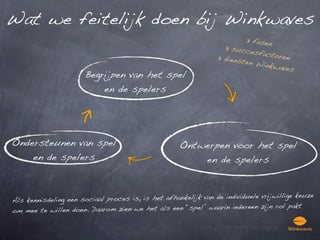 Wat we feitelijk doen bij Winkwaves
3 fasen
3 succesfactoren
3 diensten Winkwaves
Begrijpen van het spel
en de spelers
Ondersteunen van spel
en de spelers
Ontwerpen voor het spel
en de spelers
Als kennisdeling een sociaal proces is, is het afhankelijk van de individuele vrijwillige keuze
om mee te willen doen. Daarom zien we het als een "spel" waarin iedereen zijn rol pakt
Winkwaves